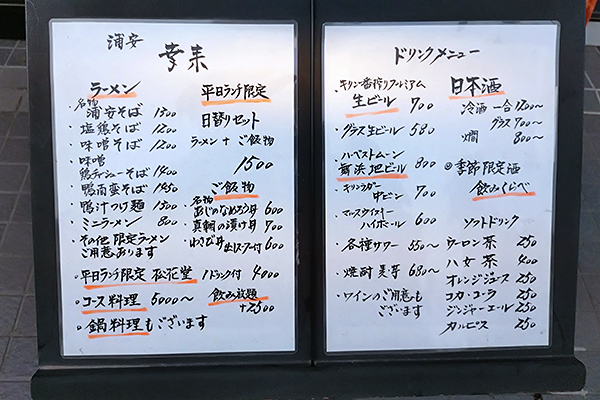 浦安
幸来
ラーメン
・名物 浦安そば 1300
・塩鶏そば 1200
・味噌そば 1200
・味噌
鶏チャーシューそば 1400
・鴨南蛮そば 1450
・鴨汁つけ麺 1500
・ミニラーメン 800
・その他 限定ラーメン
ご用意あります
平日ランチ限定
日替りセット
ラーメン + ご飯物
1500
ご飯物
・名物
あじのなめろう丼 600
・真鯛の漬け丼 700
・わさび丼 出しスープ付 600
・平日ランチ限定 松花堂 1ドリンク付 4000
・コース料理 5000〜
飲み放題
+2500
・鍋料理もございます
ドリンクメニュー
・キリン一番搾りプレミアム
生ビール 700
・グラス生ビール 580
・ハーベストムーン
舞浜地ビール 800
・キリンラガー
中ビン 700
・ハイボール 600
・各種サワー 550〜
・焼酎 麦 芋 680〜
・ワインのご用意も
ございます
日本酒
冷酒 一合 1200〜
グラス 700〜
燗 800〜
◎季節限定酒
飲みくらべ
ソフトドリンク
ウーロン茶 250
八女茶 400
オレンジジュース 250
コカ・コーラ 250
ジンジャーエール 250
カルピス 250